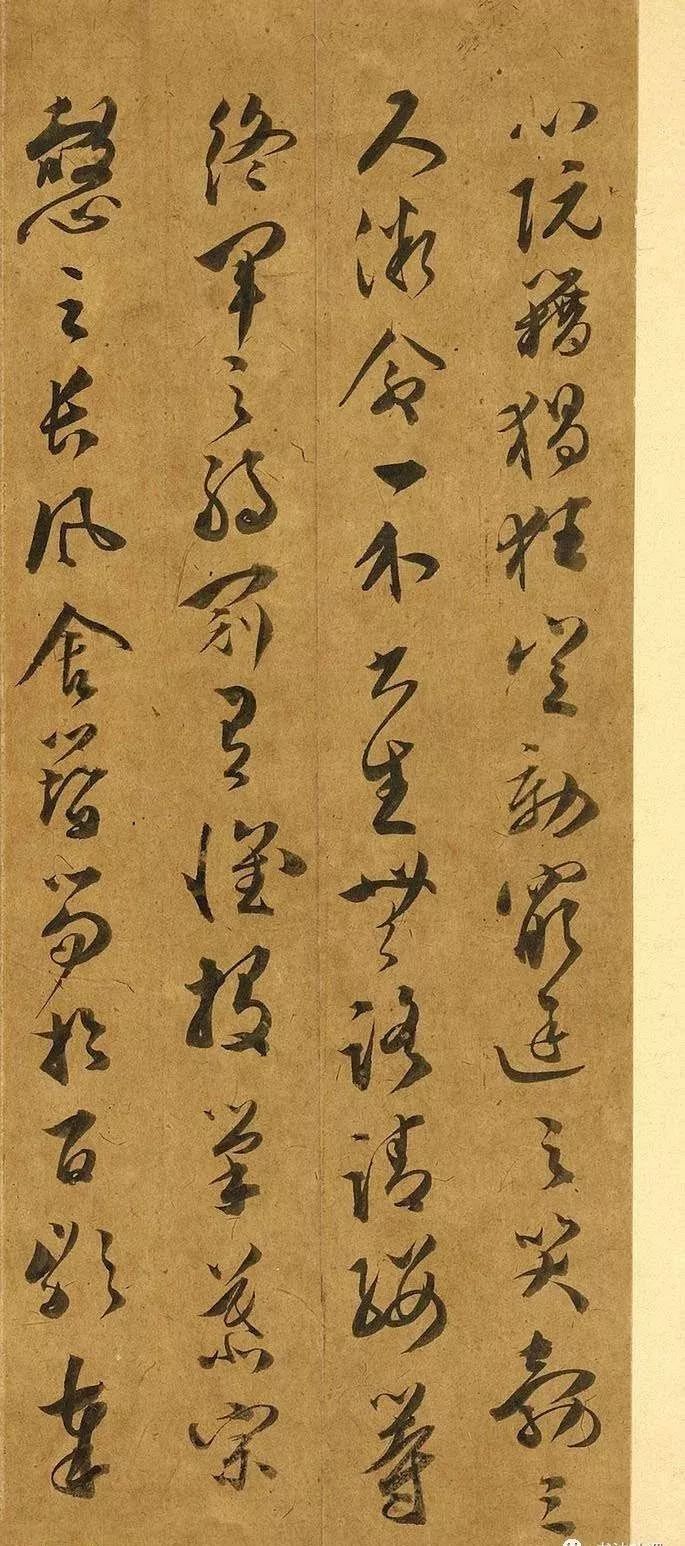 心阮籍猖狂豈効窮途之哭勃三
尺微命一介書生無路請纓等
終軍之弱冠有懷投筆慕宗
愨之長風舍簪笏於百齡奉